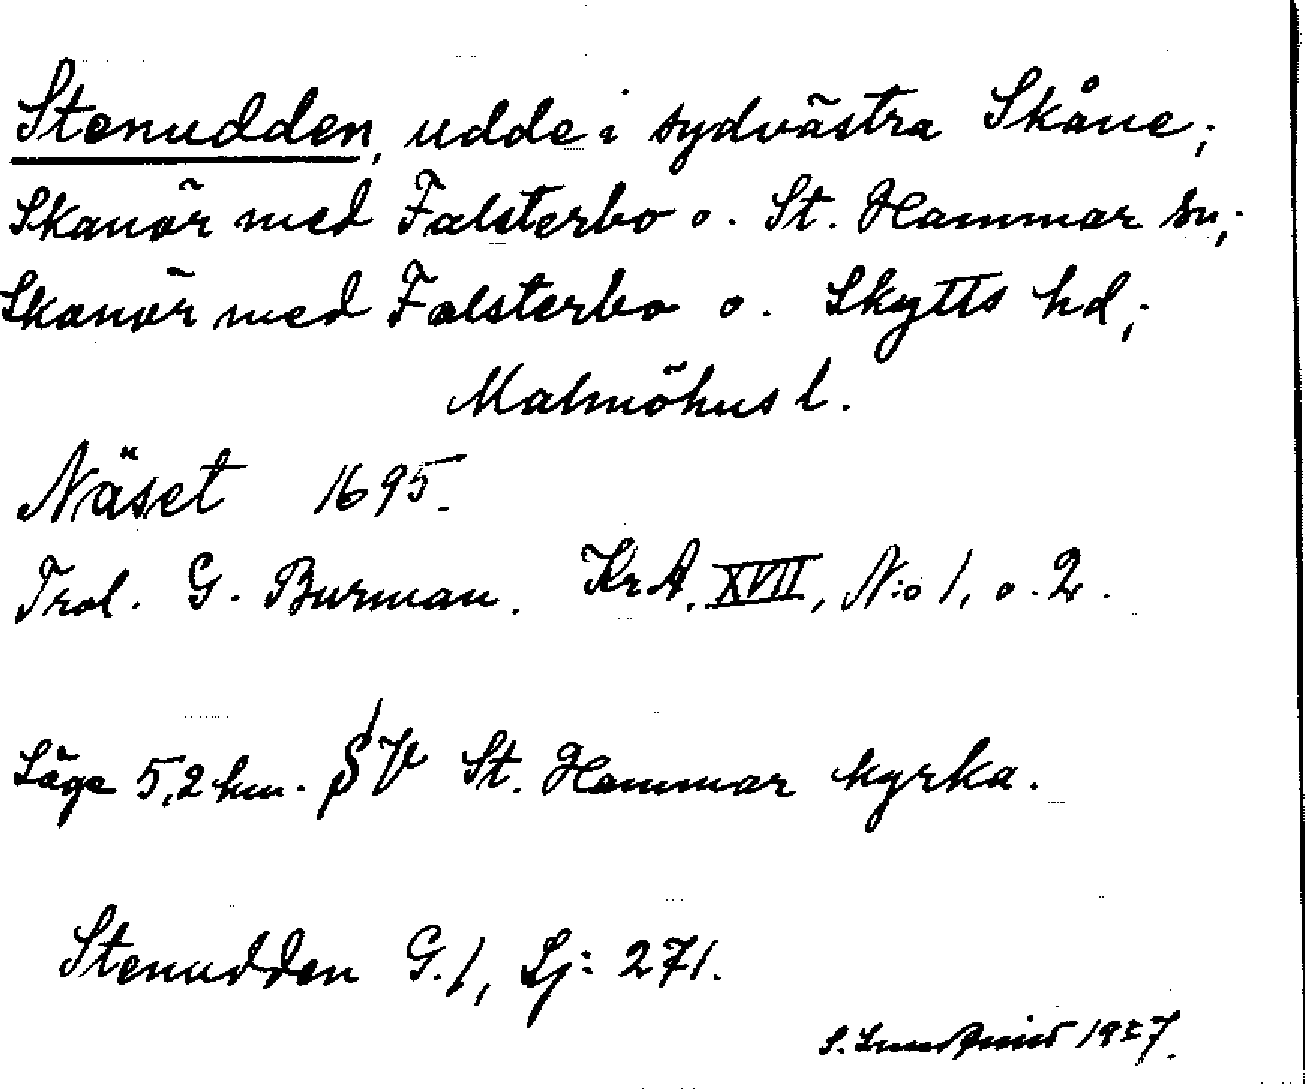 Stenudden, udde i sydvästra Skåne;
Skanör med Falsterbo o. St. Hammar sn;
Skanör med Falsterbo o. Skytts hd;
Malmöhus l.
Näset 1695.
Trol. G. Burman. KrA. XVII, N:o 1, o. 2.
Läge 5,2 km. SV St. Hammar kyrka.
Stenudden G. 1, Sj: 271.
S. 1927.